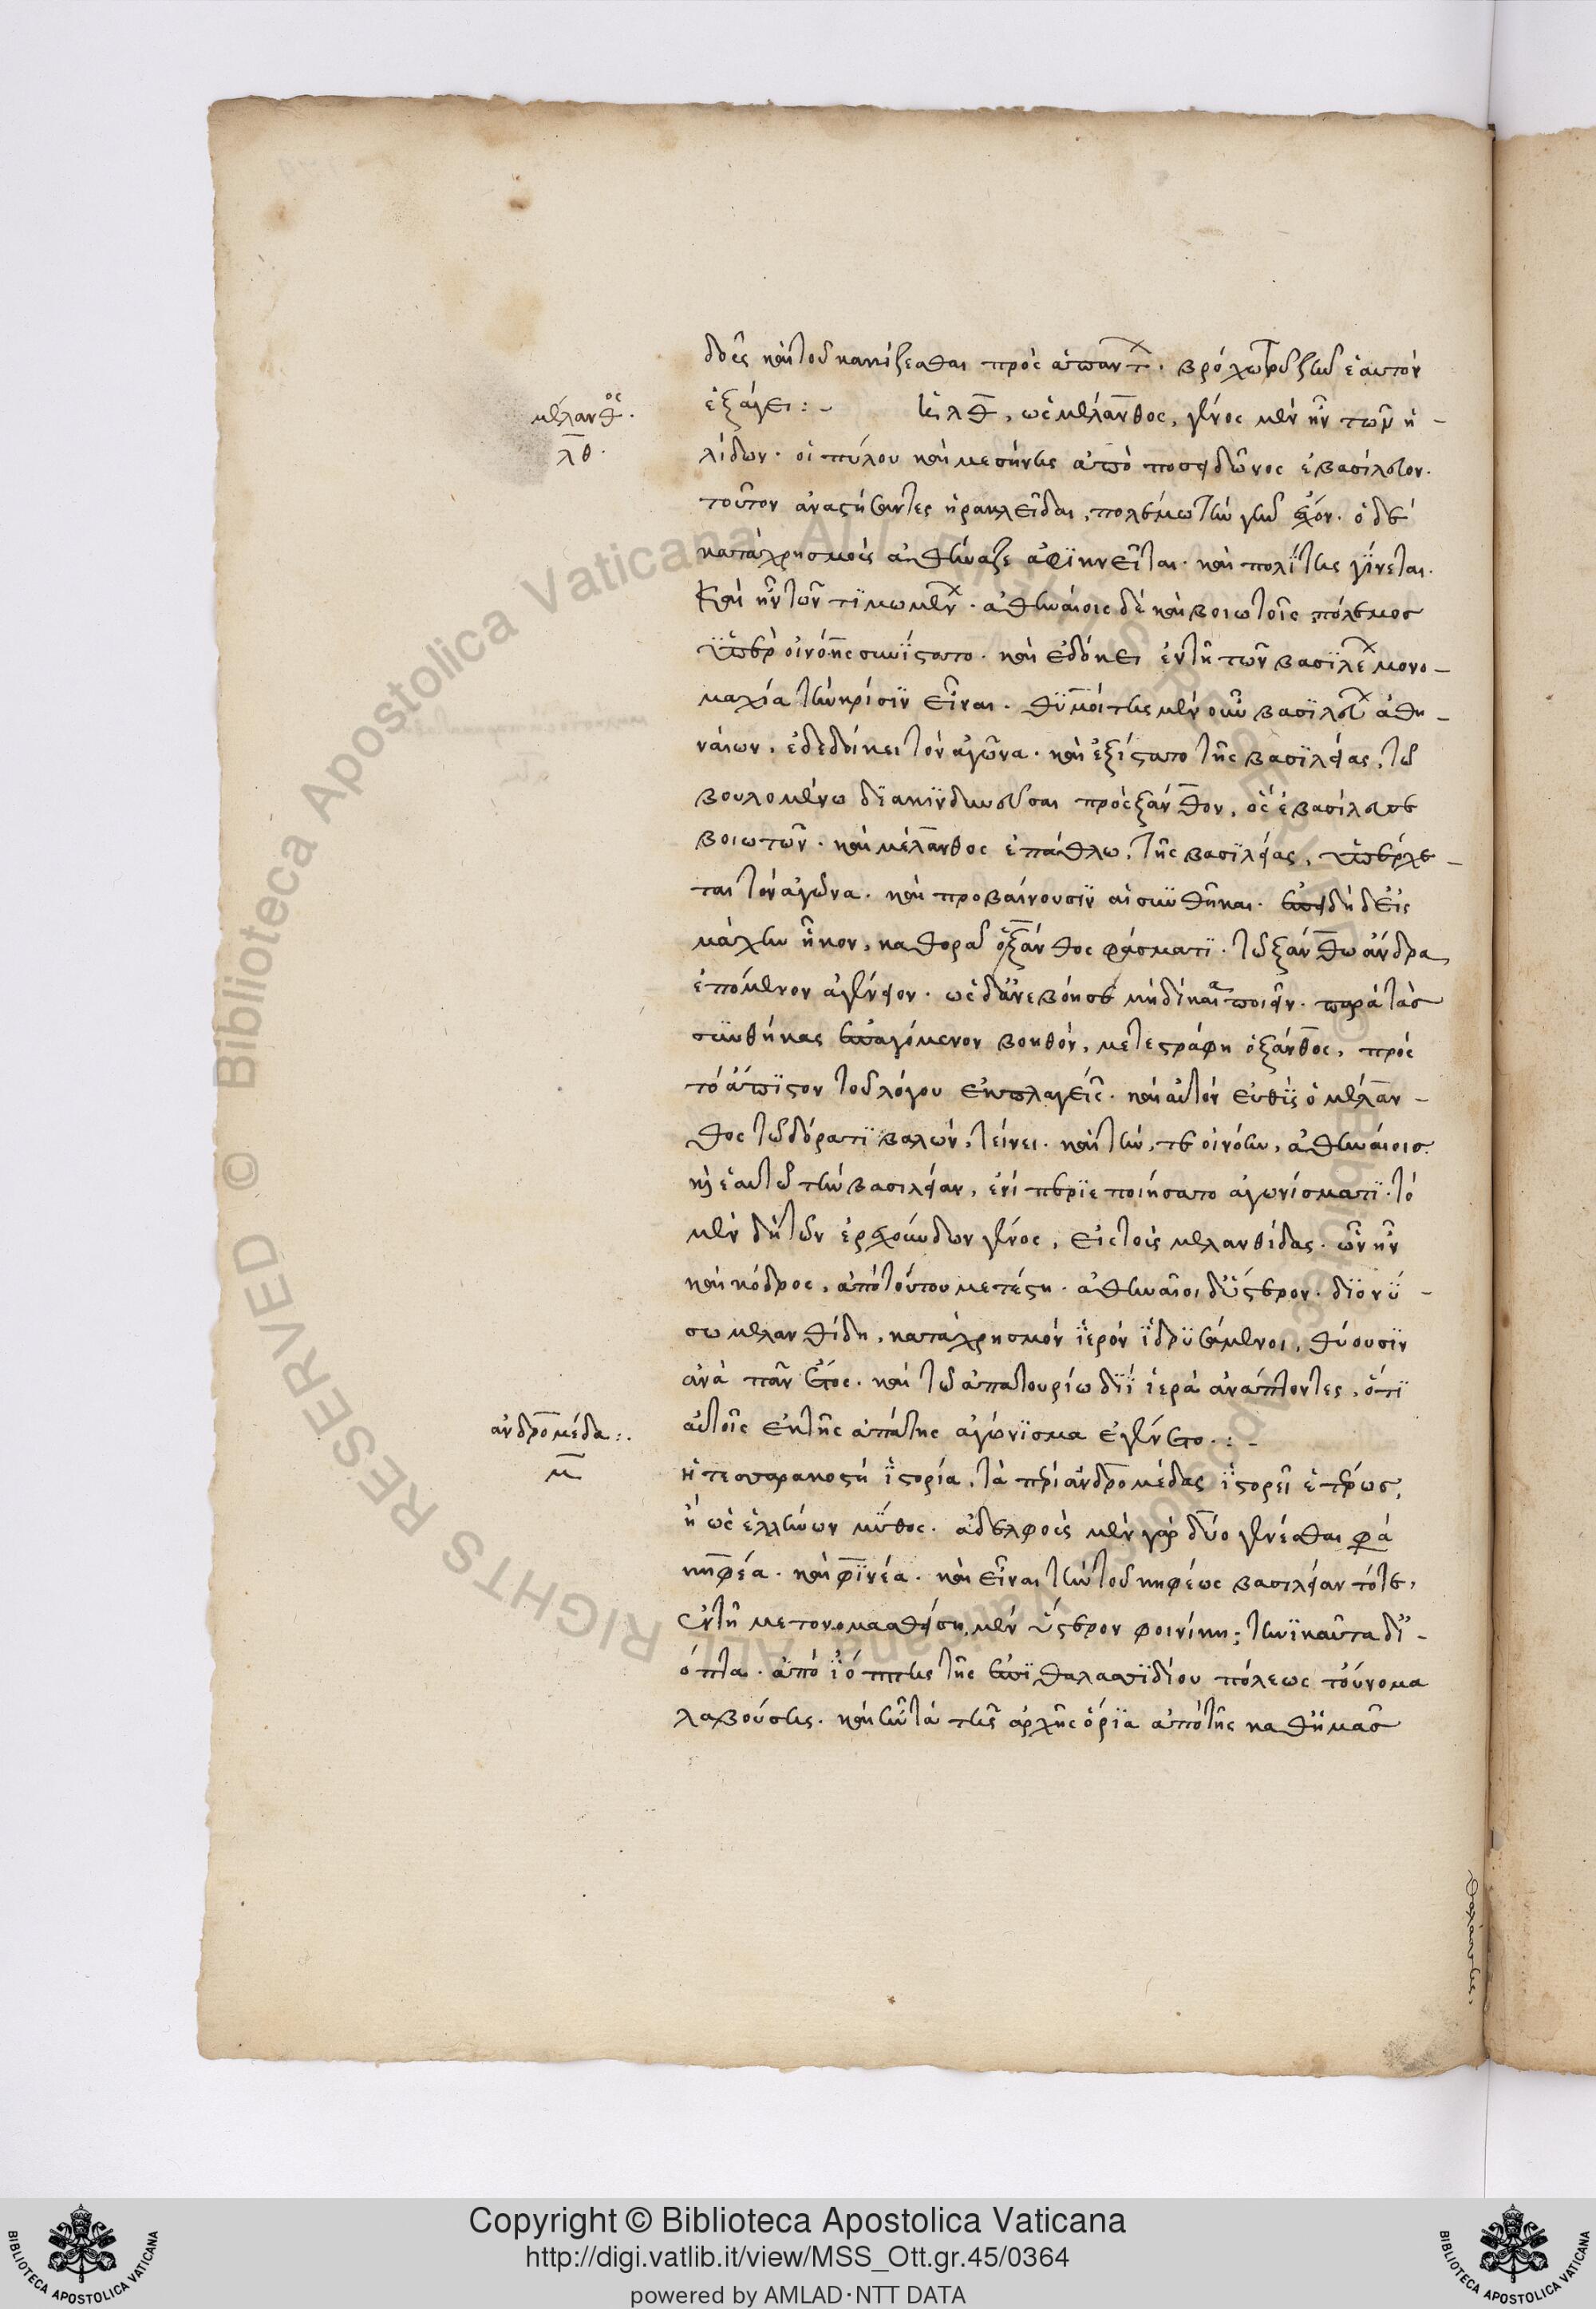 δοὺς καὶ τοῦ κακίζεσθαι πρὸς ἁπάντων. βρόχω τοῦ ζῆν ἑαυτὸν
μέλανθος.
ἐξάγει :-
ἡ λθ, ὡς μέλανθος, γένος μὲν ἦν τῶν η-
λθ.
λίδων. οἳ πύλου καὶ μεσήνης ἀπὸ ποσειδῶνος ἐβασίλευον.
τοῦτον ἀναστήσαντες ἡρακλεῖδαι, πολέμω τὴν γῆν ἔσχον. ὁ δὲ
κατὰ χρησμοὺς ἀθήναζε ἀφϊκνεῖται. καὶ πολίτης γίνεται.
καὶ ἦν τῶν τϊμωμένων. ἀθηναίοις δὲ καὶ βοιωτοῖς πόλεμος
ὑπὲρ οἰνόης συνΐστατο. καὶ ἐδόκει ἐν τῆ τῶν βασϊλέων μονο-
μαχία τὴν κρίσϊν εἶναι. θϋμοίτης μὲν οὖν βασϊλεύων ἀθη-
ναίων, ἐδεδοίκει τὸν ἀγῶνα. καὶ ἐξίστατο τῆς βασϊλείας, τῶ
βουλομένω δϊακϊνδυνεῦσαι πρὸς ξάνθον, ὃς ἐβασίλευε
βοιωτῶν. καὶ μέλανθος ἐπάθλω, τῆς βασϊλείας, ὑπέρχε-
ται τὸν ἀγῶνα. καὶ προβαίνουσϊν αἱ συνθῆκαι. ἐπεὶ δὴ δ εἰς
μάχην ἧκον, καθορᾶ ὁ ξάνθος φάσματϊ. τῶ ξάνθω ἄνδρα
ἑπόμενον ἀγένειον. ὡς δ ἀνεβόησε μὴ δίκαια ποιεῖν. παρὰ τὰς
συνθήκας ἐπαγόμενον βοηθὸν, μετεστράφη ὁ ξάνθος, πρὸς
τὸ ἄπϊστον τοῦ λόγου ἐκπλαγεὶς. καὶ αὐτὸν εὐθὺς ὁ μέλαν-
θος τῶ δόρατϊ βαλὼν, κτείνει. καὶ τὴν, τε οἰνόην, ἀθηναίοις
καὶ ἑαυτῶ τὴν βασιλείαν, ἑνὶ περϊεποιήσατο ἀγωνίσματϊ. τὸ
μὲν δὴ τῶν ἐρεχθειδῶν γένος, εἰς τοὺς μελανθίδας. ὧν ἦν
καὶ κόδρος, ἀπὸ τούτου μετέστη. ἀθηναῖοι δ ὕστερον. δϊονύ-
σω μελανθίδη, κατὰ χρησμὸν ϊερὸν ϊδρϋσάμενοι, θύουσϊν
ἀνὰ πᾶν ἔτος. καὶ τῶ ἀπατουρίω δϊῒ ἱερὰ ἀνάπτοντες, ὅτϊ
αὐτοῖς ἐκ τῆς ἀπάτης ἀγώνϊσμα ἐγένετο. :-
ἀνδρομέδα :.
μ
ἡ τεσσαρακοστὴ ϊστορία, τὰ περὶ ἀνδρομέδας ϊστορεῖ ἑτέρως,
ἢ ὡς ἑλλήνων μῦθος. ἀδελφοὺς μὲν γὰρ δύο γενέσθαι φασὶ
κηφέα. καὶ φϊνέα. καὶ εἶναι τὴν τοῦ κηφέως βασιλείαν τότε,
ἐν τῆ μετονομασθείση, μὲν ὕστερον φοινίκη;
ὄπτα. ἀπὸ ϊόππης τῆς ἐπϊθαλασσϊδίου πόλεως τοὔνομα
λαβούσης. καὶ ἦν τὰ τῆς ἀρχῆς ὅρϊα ἀπὸ τῆς καθ ἡμᾶς
θαλάσσης.
Copyright © Biblioteca Apostolica Vaticana
http://digi.vatlib.it/view/MSS_Ott.gr.45/0364
powered by AMLAD·NTT DATA